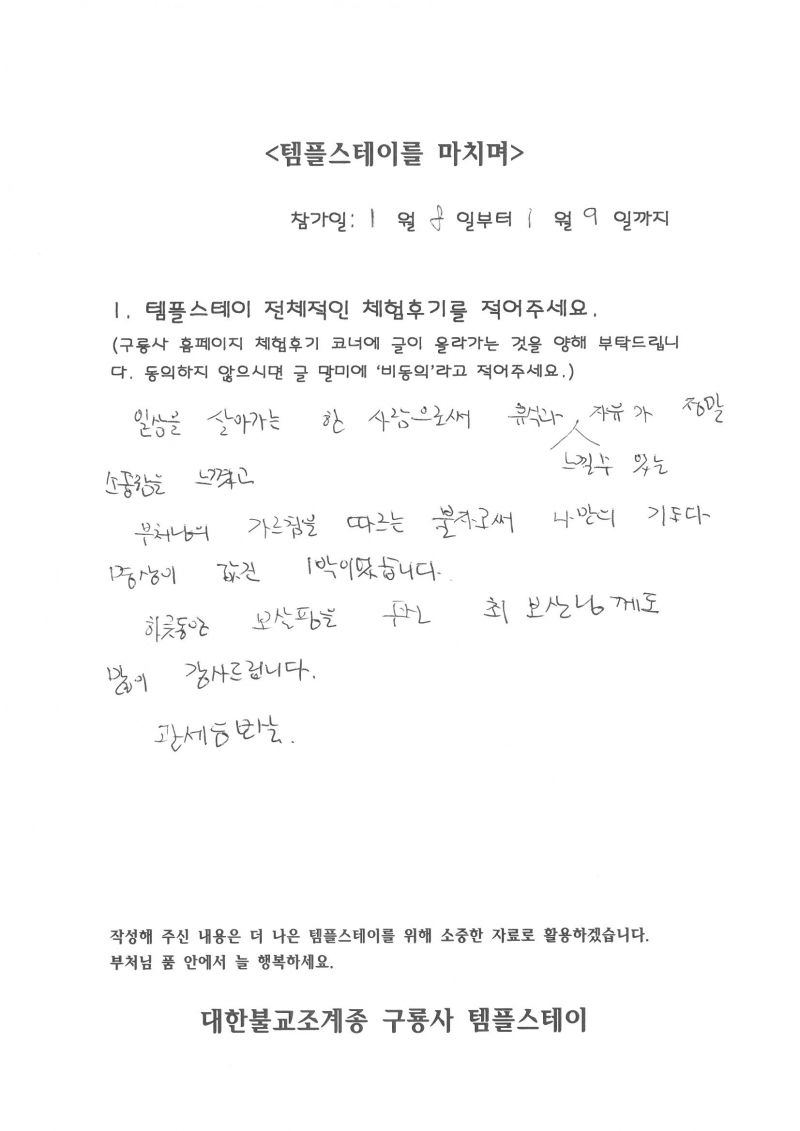 <템플스테이를 마치며>
참가일: 1 월 8 일부터 1 월 9 일까지
1. 템플스테이 전체적인 체험후기를 적어주세요.
(구룡사 홈페이지 체험후기 코너에 글이 올라가는 것을 양해 부탁드립니
다. 동의하지 않으시면 글 말미에 '비동의'라고 적어주세요.)
일상을 살아가는 한 사람으로써 휴식과, 자유가 정말
느낄수 있는
소중함을 느꼈고
부처님의 가르침을 따르는 불자로써 나만의 기도다
값진 1박이었습니다.
하룻동안 보살핌을 주신 최 보살님께도
많이 감사드립니다.
관세음보살.
작성해 주신 내용은 더 나은 템플스테이를 위해 소중한 자료로 활용하겠습니다.
부처님 품 안에서 늘 행복하세요.
대한불교조계종 구룡사 템플스테이